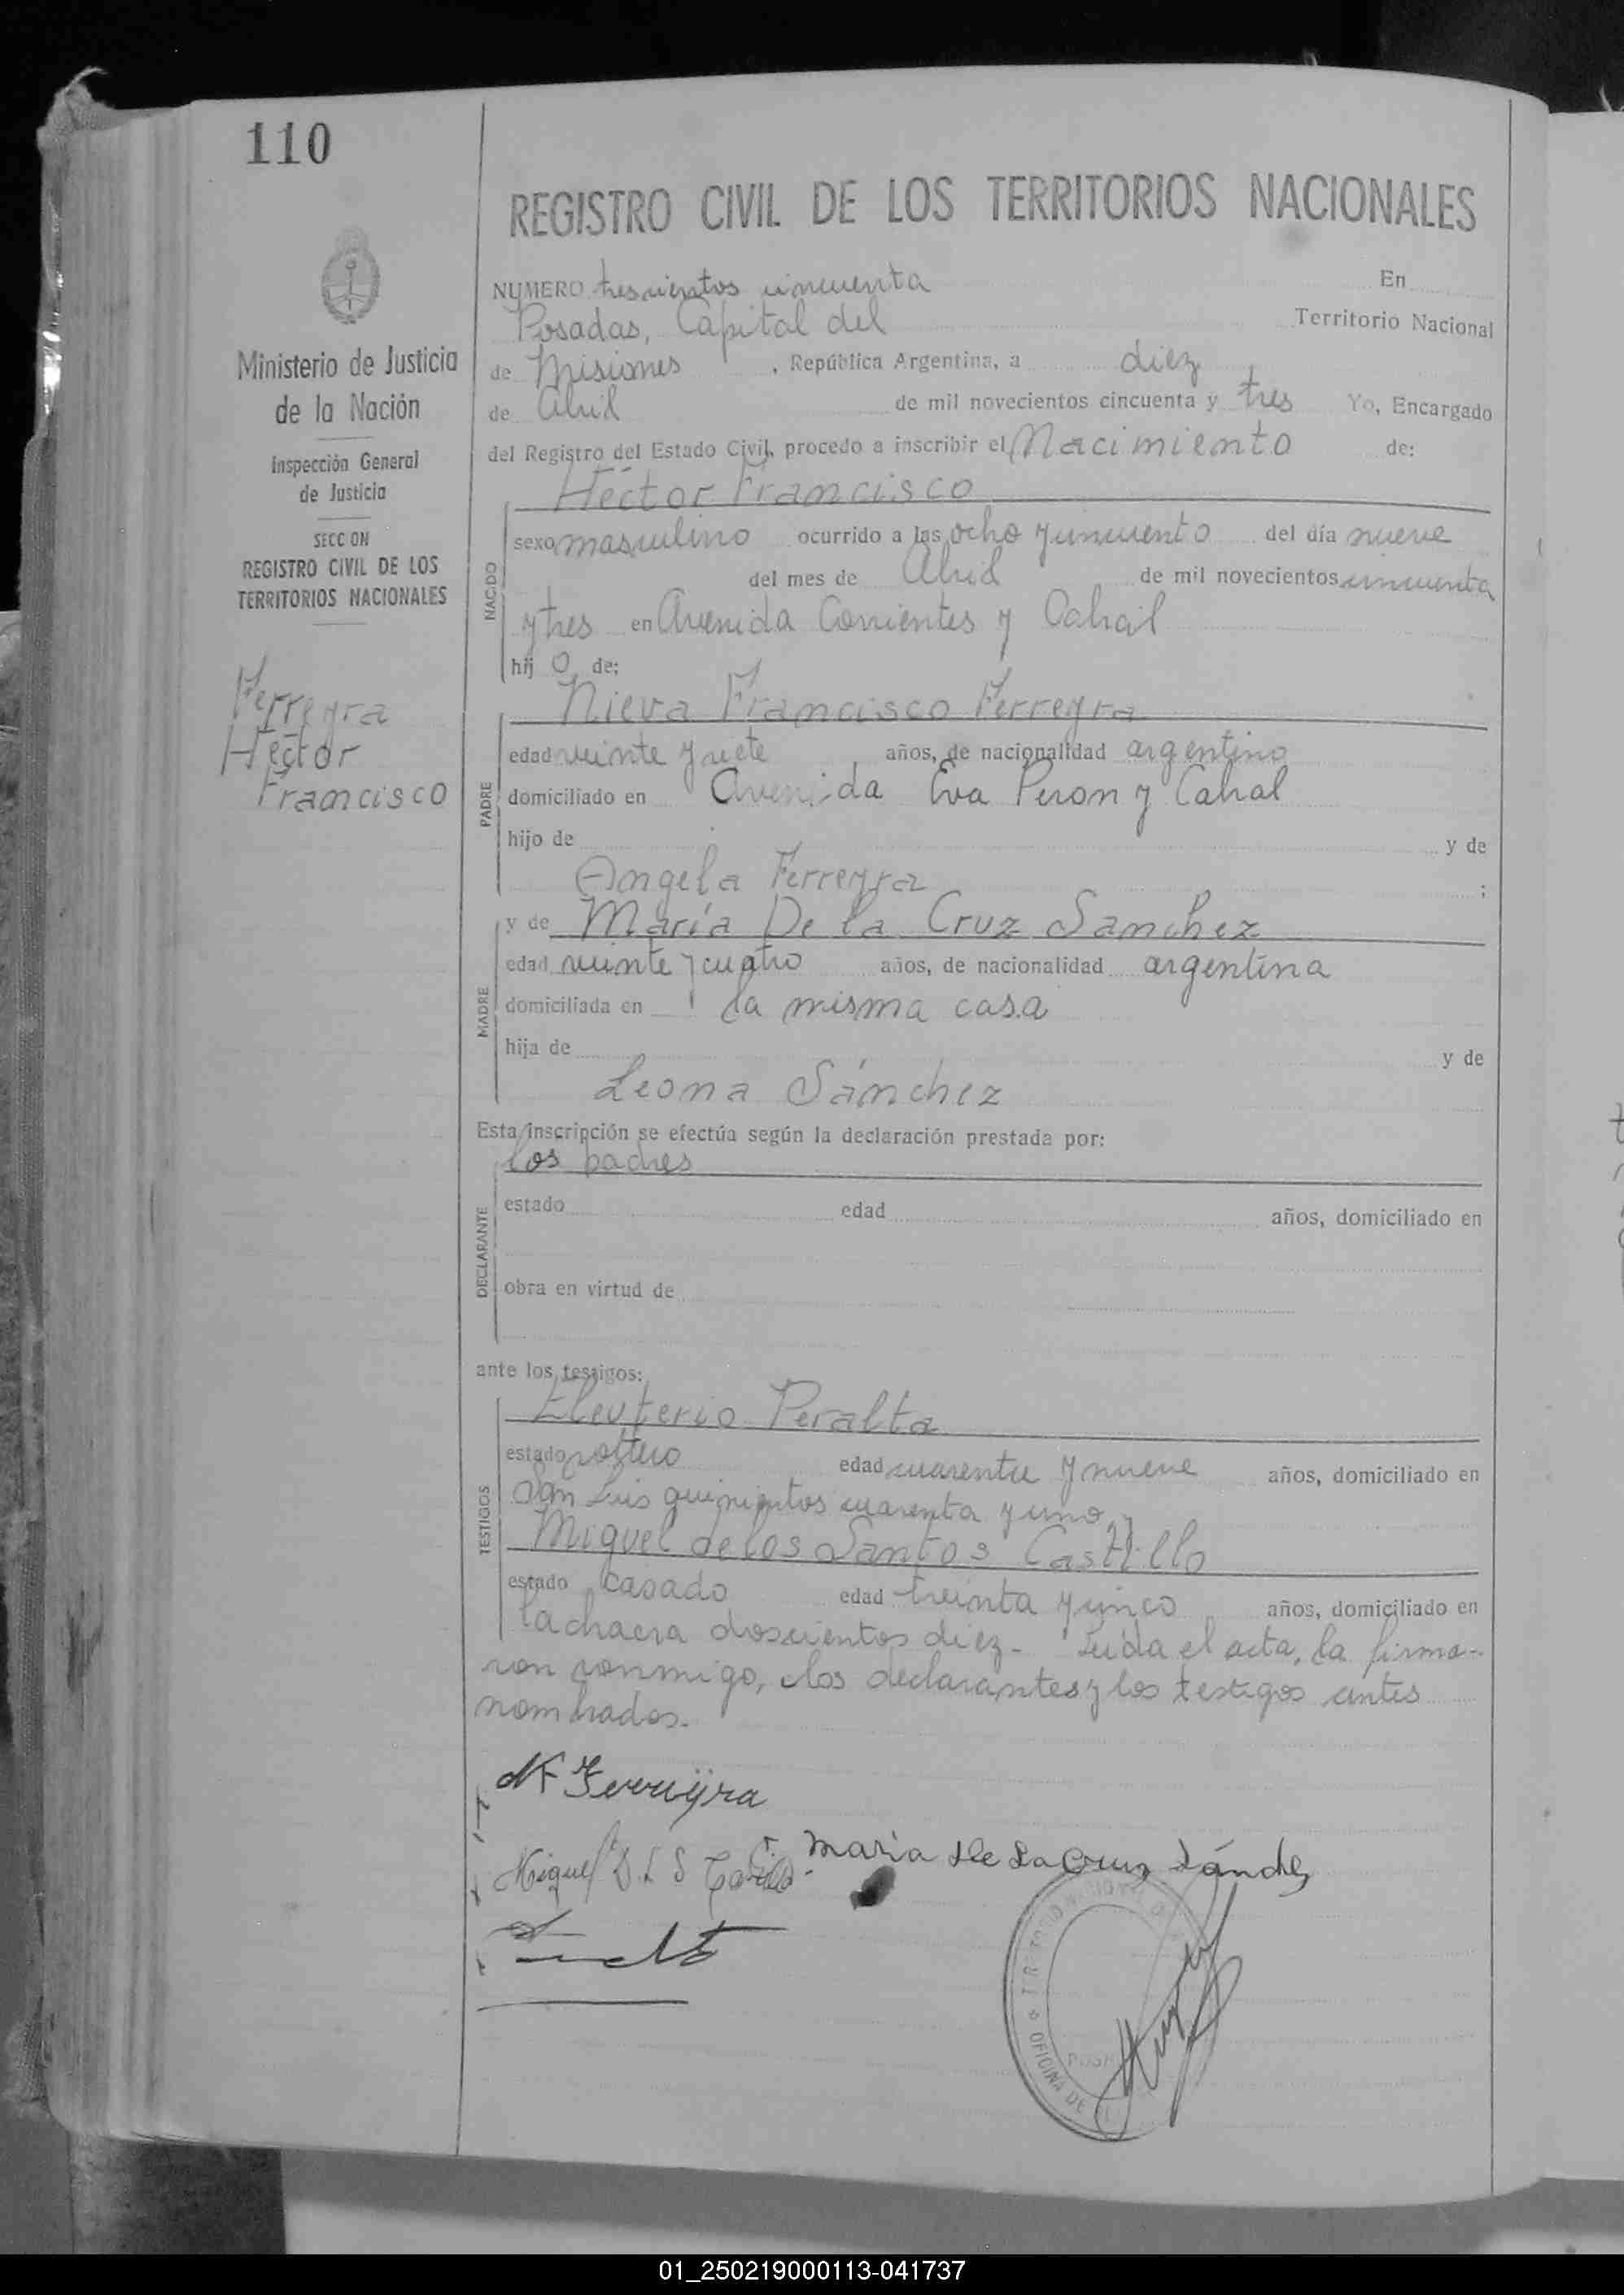 110
REGISTRO CIVIL DE LOS TERRITORIOS NACIONALES
Ministerio de Justicia
de la Nación
Inspección General
de Justicia
SECCION
REGISTRO CIVIL DE LOS
TERRITORIOS NACIONALES
Ferreyra
Héctor
Francisco
NUMERO trescientos cincuenta En
Posadas, Capital del Territorio Nacional
de Misiones , República Argentina, a diez
de Abril de mil novecientos cincuenta y tres Yo, Encargado
del Registro del Estado Civil, procedo a inscribir el Nacimiento de:
Héctor Francisco
NACIDO
sexo masculino ocurrido a las ocho y cincuenta del día nueve
del mes de Abril de mil novecientos cincuenta
y tres en Avenida Corrientes y Cabral
hij o de:
Nieva Francisco Ferreyra
PADRE
edad veinte y siete años, de nacionalidad argentino
domiciliado en Avenida Eva Peron y Cabral
hijo de y de
Angela Ferreyra ;
y de María De la Cruz Sanchez
MADRE
edad veinte y cuatro años, de nacionalidad argentina
domiciliada en la misma casa
hija de y de
Leona Sánchez
Esta inscripción se efectúa según la declaración prestada por:
los padres
DECLARANTE
estado edad años, domiciliado en
obra en virtud de
ante los testigos:
Eleuterio Peralta
TESTIGOS
estado soltero edad cuarenta y nueve años, domiciliado en
San Luis quinientos cuarenta y uno, y
Miguel de los Santos Castillo
estado casado edad treinta y cinco años, domiciliado en
la chacra doscientos diez- Leida el acta, la firma-
ron conmigo, los declarantes y los testigos antes
nombrados.
NF Ferreyra
Maria De La Cruz Sánchez
Miguel D. L S Castillo
OFICINA DE
01_250219000113-041737